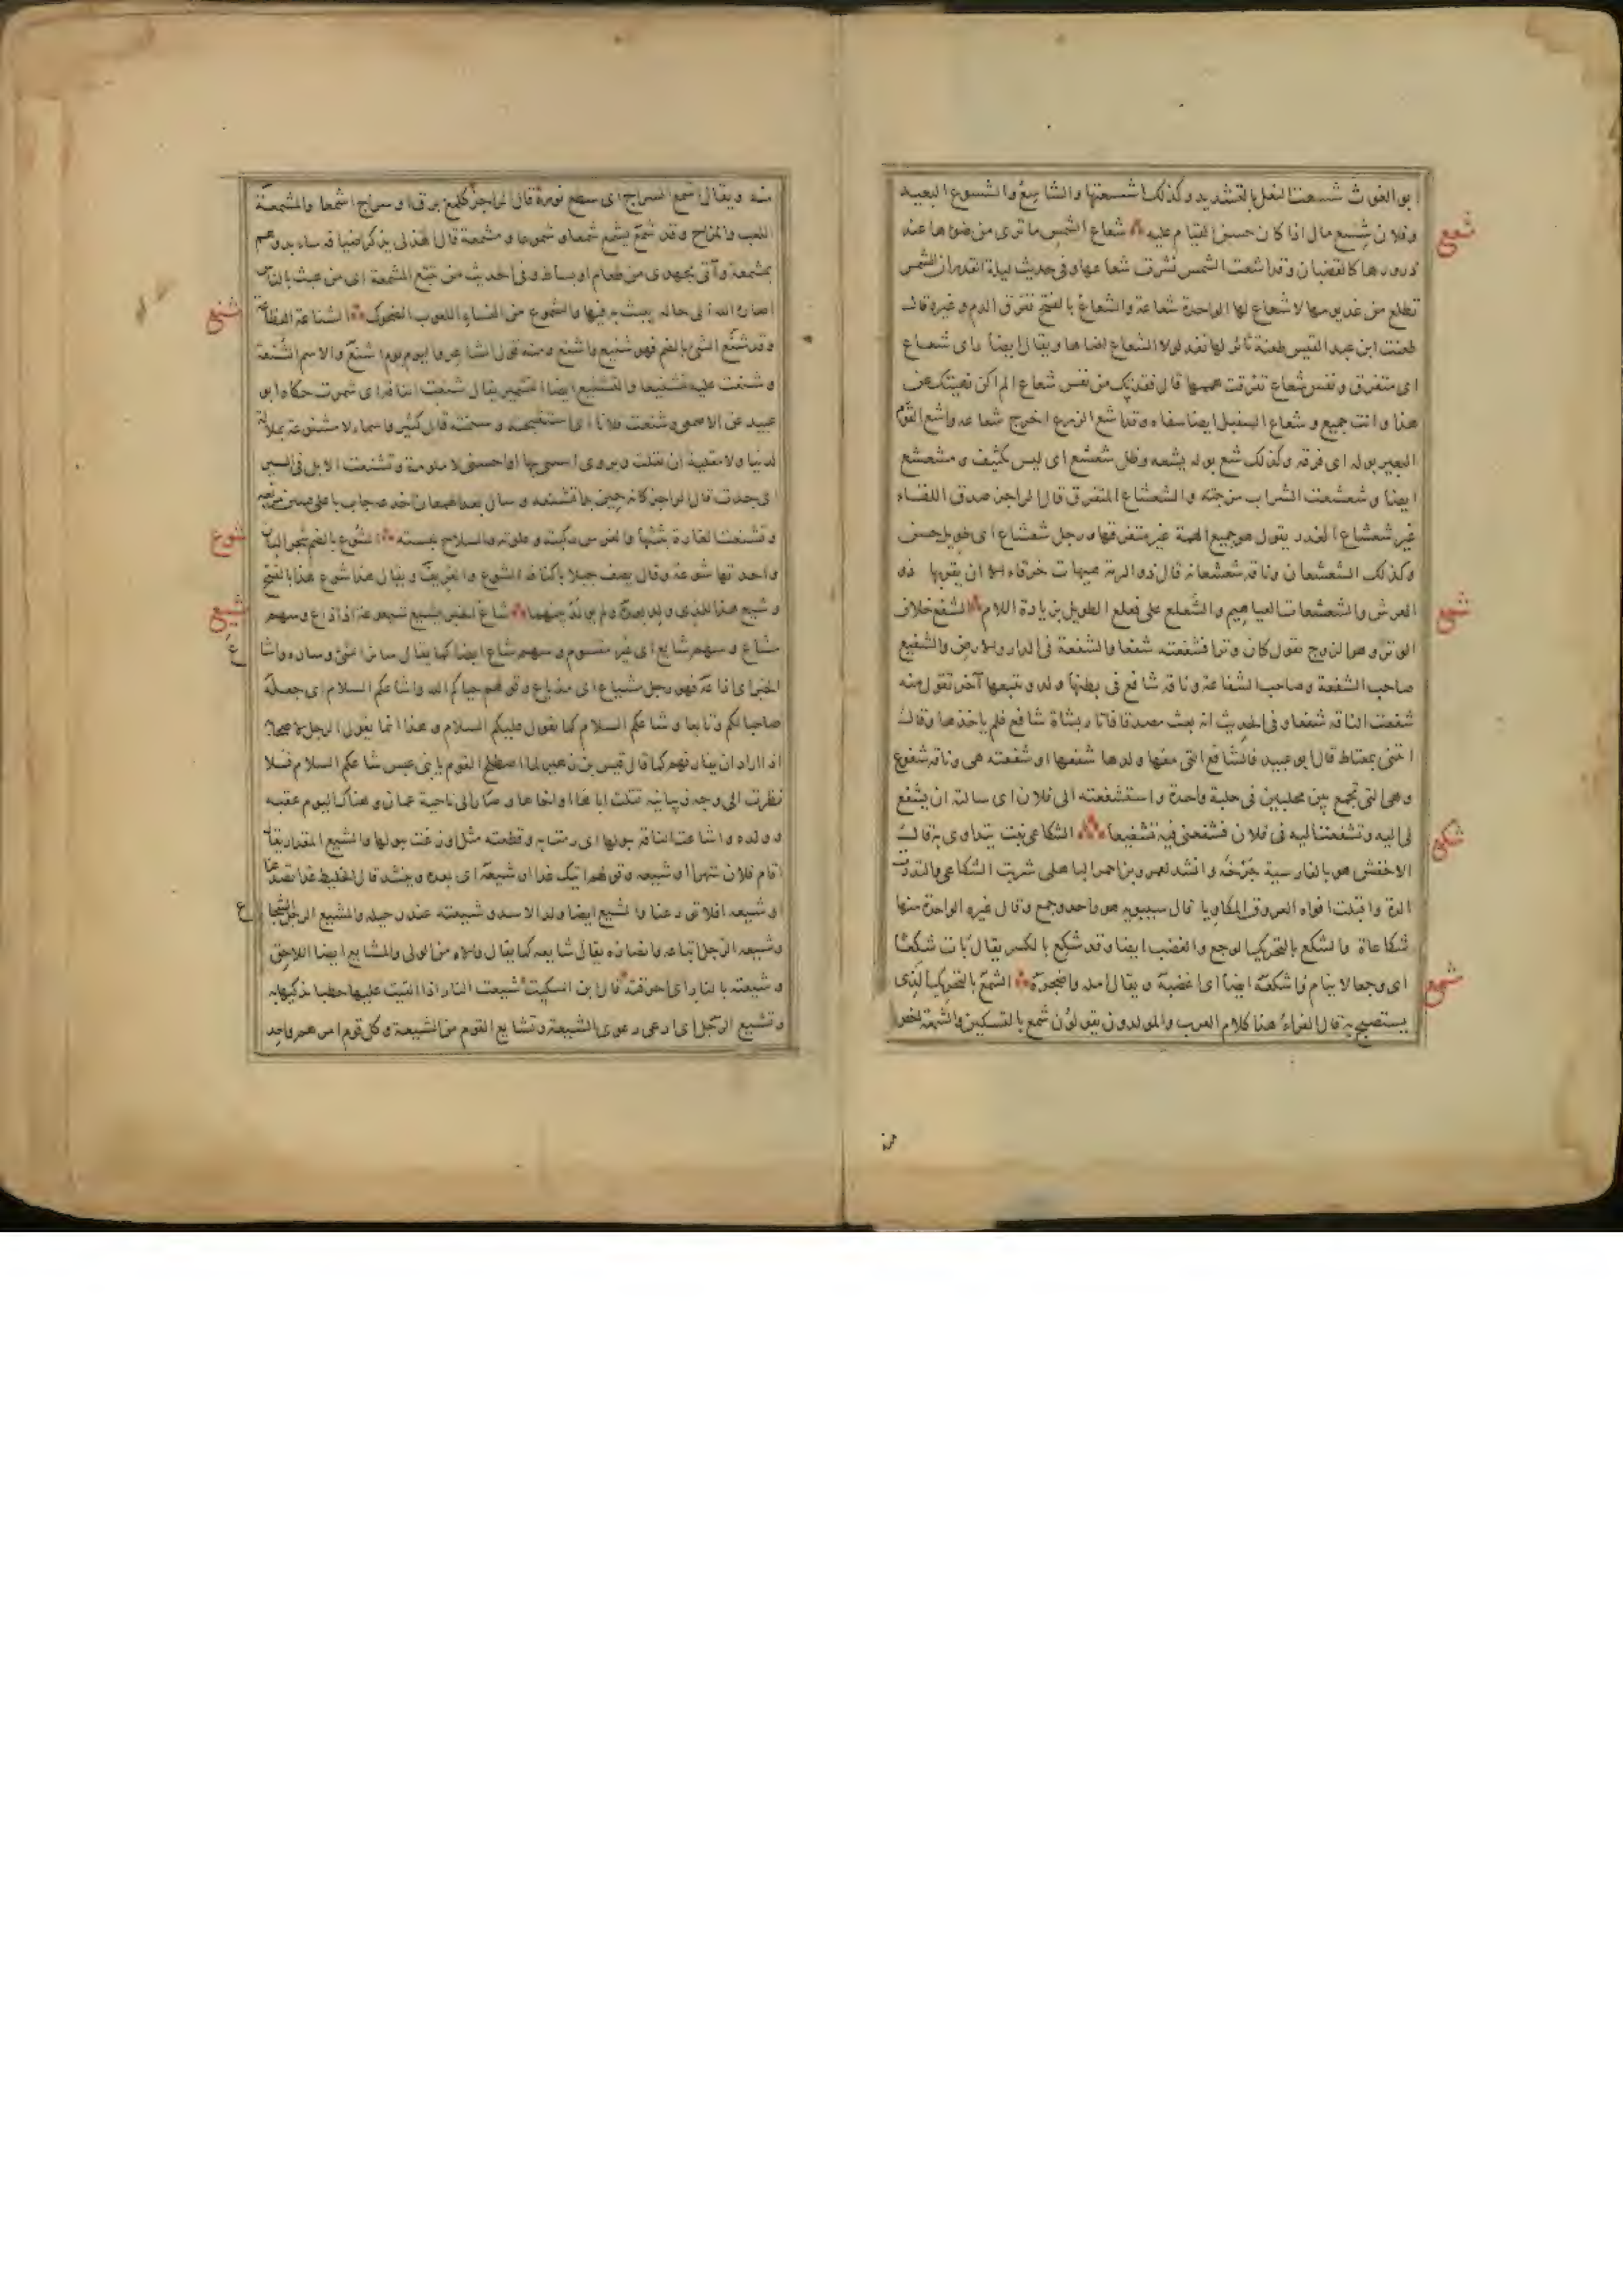 ابو الغوث شسعت النعل بالتشديد وكذلك اشسعتها والشاسع والشسوع البعيد
شعع
وفلان شسع مال اذا كان حسن القيام عليه شعاع الشمس ما ترى من ضوءها عند
ذرورها كالقضبان وقد اشعت الشمس نشرت شعاعها وفى حديث ليلة القدر ان الشمس
تطلع من غد يومها لا شعاع لها الواحدة شعاعة والشعاع بالفتح تفرق الدم وغيره قال
طعنت ابن عبد القيس طعنة ثائر لها نفذ لولا الشعاع اضاها ويقال ايضا راى شعاع
اى متفرق ونفس شعاع تفرقت هممها قال فقدتك من نفس شعاع الم اكن نهيتك عن
هذا وانت جميع وشعاع السنبل ايضا سفاه وقد اشع الزرع اخرج شعاعه واشع القوم
البعير بوله اى فرقه وكذلك شع بوله يشعه وظل شعشع اى ليس بكثيف ومشعشع
ايضا وشعشعت الشراب مزجته والشعشاع المتفرق قال الراجز صدق اللقاء
غير شعشاع الغدر يقول هو جميع الهمة غير متفرقها ورجل شعشاع اى طويل حسن
وكذلك الشعشعان وناقه شعشعانه قال ذو الرمة هيهات خرقاء الا ان يقربها ذو
شفع
العرش والشعشعات العياهيم والشعلع على فعلع الطويل بزيادة اللام الشفع خلاف
الوتر وهو الزوج تقول كان وترا فشفعته شفعا والشفعة فى الدار والارض والشفيع
صاحب الشفعة وصاحب الشفاعة وناقه شافع فى بطنها ولد و يتبعها آخر تقول منه
شفعت الناقه شفعا وفى الحديث انه بعث مصدقا فاتاه بشاة شافع فلم ياخذها وقال
ائتنى بمعتاط قال ابو عبيد فالشافع التى معها ولدها شفعها او شفعته هى وناقه شفوع
وهى التى تجمع بين محلبين فى حلبة واحدة واستشفعته الى فلان اى سالته ان يشفع
شكع
لى اليه وتشفعت اليه فى فلان فشفعنى فيه تشفيعا الشكاعى نبت يتداوى به قال
الاخفش هو بالفارسية چرخه وانشد لعمرو بن احمر الباهلى شربت الشكاعى والتددت
الدة واقبلت افواه العروق المكاويا قال سيبويه هو واحد وجمع وقال غيره الواحدة منها
شكاعاة والشكع بالتحريك الوجع والغضب ايضا وقد شكع بالكسر يقال بات شكعا
شمع
اى وجعا لا ينام واشكعه ايضا اى اغضبه ويقال امله واضجره الشمع بالتحريك الذى
يستصبح به قال الفراء هذا كلام العرب والمولدون يقولون شمع بالتسكين والشمعة اخص
منه ويقال اشمع السراج اى سطع نوره قال الراجز كلمع برق او سراج اشمعا والمشمعة
اللعب والمزاح وقد شمع يشمع شمعا وشموعا ومشمعة قال الهذلى يذكر اضيافه سابدوهم
بمشمعة وآتى بجهدى من طعام او بساط وفى الحديث من تتبع المشمعة اى من عبث بالناس
شنع
اصاره الله الى حالة يعبث به فيها والشموع من النساء اللعوب الضحوك الشناعة الفظاعة
وقد شنع الشئ بالضم فهو شنيع واشنع ومنه قول الشاعر واليوم يوم اشنع والاسم الشنعة
وشنعت عليه تشنيعا والتشنيع ايضا التشمير يقال شنعت الناقة اى شمرت حكاه ابو
عبيد عن الاصمعى وشنعت فلانا اى استقبحته وسئمته قال كثير واسماء لا مشنوعة بملالة
لدينا ولا مقلية ان تقلت ويروى اسيئى بها او احسنى لا ملومة وتشنعت الابل فى السير
اى جدت قال الراجز كانه حين بدا تشنعه وسال بعد الهمعان اخدعه جاب باعلى
شوع
وتشنعت الغارة بثثتها والفرس ركبته وعلوته والسلاح لبسته الشوع بالضم شجر البان
واحدتها شوعة وقال يصف جبلا باكنافه الشوع والغريف ويقال هذا شوع هذا بالفتح
شيع
وشيع هذا للذى ولد بعده ولم يولد بينهما شاع الخبر يشيع شيعوعة اذا ذاع وسهم
مشاع وسهم شايع اى غير مقسوم وسهم شاع ايضا كما يقال سائر الشئ وساره واشاع
الخبر اى اذاعه فهو رجل مشياع اى مذياع وقولهم حياكم الله واشاعكم السلام اى جعله
صاحبا لكم وتابعا وشاعكم السلام كما يقول عليكم السلام وهذا انما يقوله الرجل لاصحابه
اذا اراد ان يفارقهم كما قال قيس بن زهير لما اصطلح القوم يا بنى عبس شاعكم السلام فلا
نظرت الى وجه ذبيانية قتلت اباها او اخاها وسار الى ناحية عمان وهناك اليوم عقبه
وولده واشاعت الناقه ببولها اى رمت به وقطعته مثل اوزغت ببولها والشيع المقدار يقال
اقام فلان شهرا او شيعه وقولهم اتيك غدا او شيعه اى بعده وينشد قال الخليط غدا تصدعنا
او شيعه افلا تودعنا والشيع ايضا ولد الاسد وشيعته عند رحيله والمشيع الرجل الشجاع
وشيعه الرجل اتباعه وانصاره يقال شايعه كما يقال والاه من الولى والمشايع ايضا اللاحق
وشيعته بالنار اى احرقته قال ابن السكيت شيعت النار اذا القيت عليها حطبا تذكيها به
وتشيع الرجل اى ادعى دعوى الشيعة وتشايع القوم من الشيعة وكل قوم امرهم واحد